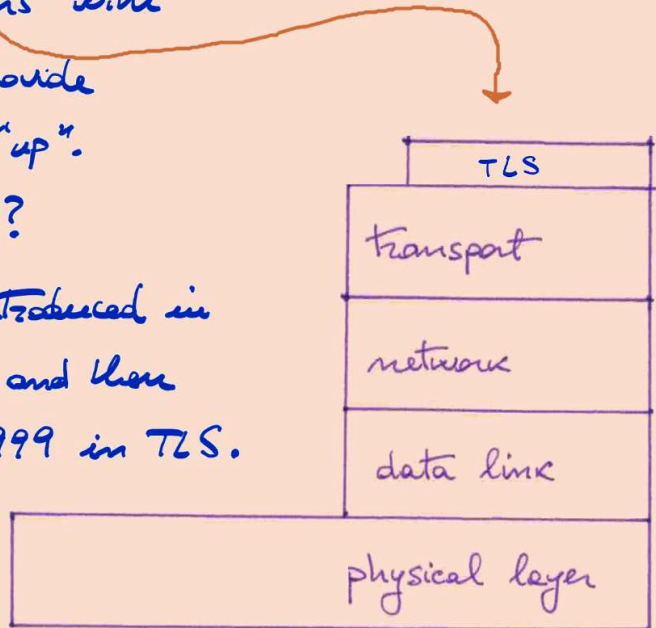 ovide
"up".
?
troduced in
and then
999 in TLS.
TLS
transport
network
data link
physical layer